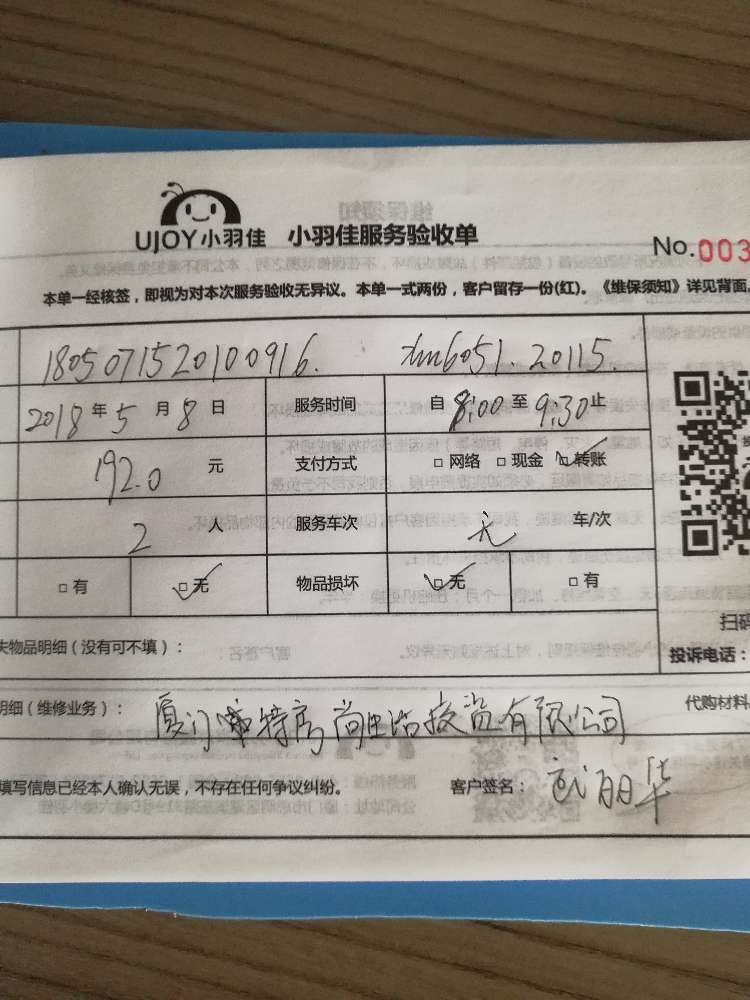 UJOY小羽佳 小羽佳服务验收单
No.003
本单一经核签，即视为对本次服务验收无异议。本单一式两份，客户留存一份(红)。《维保须知》详见背面。
1805071520100916. xm6051.20115.
2018年5月8日 服务时间 自8:00至9:30止
192.0元 支付方式 □网络 □现金 □转账
2人 服务车次 无 车/次
□有 □无 物品损坏 □无 □有
扫码
失物品明细（没有可不填）：
投诉电话：
明细（维修业务）： 厦门 特房尚 投资有限公司 代购材料
填写信息已经本人确认无误，不存在任何争议纠纷。 客户签名： 丽华